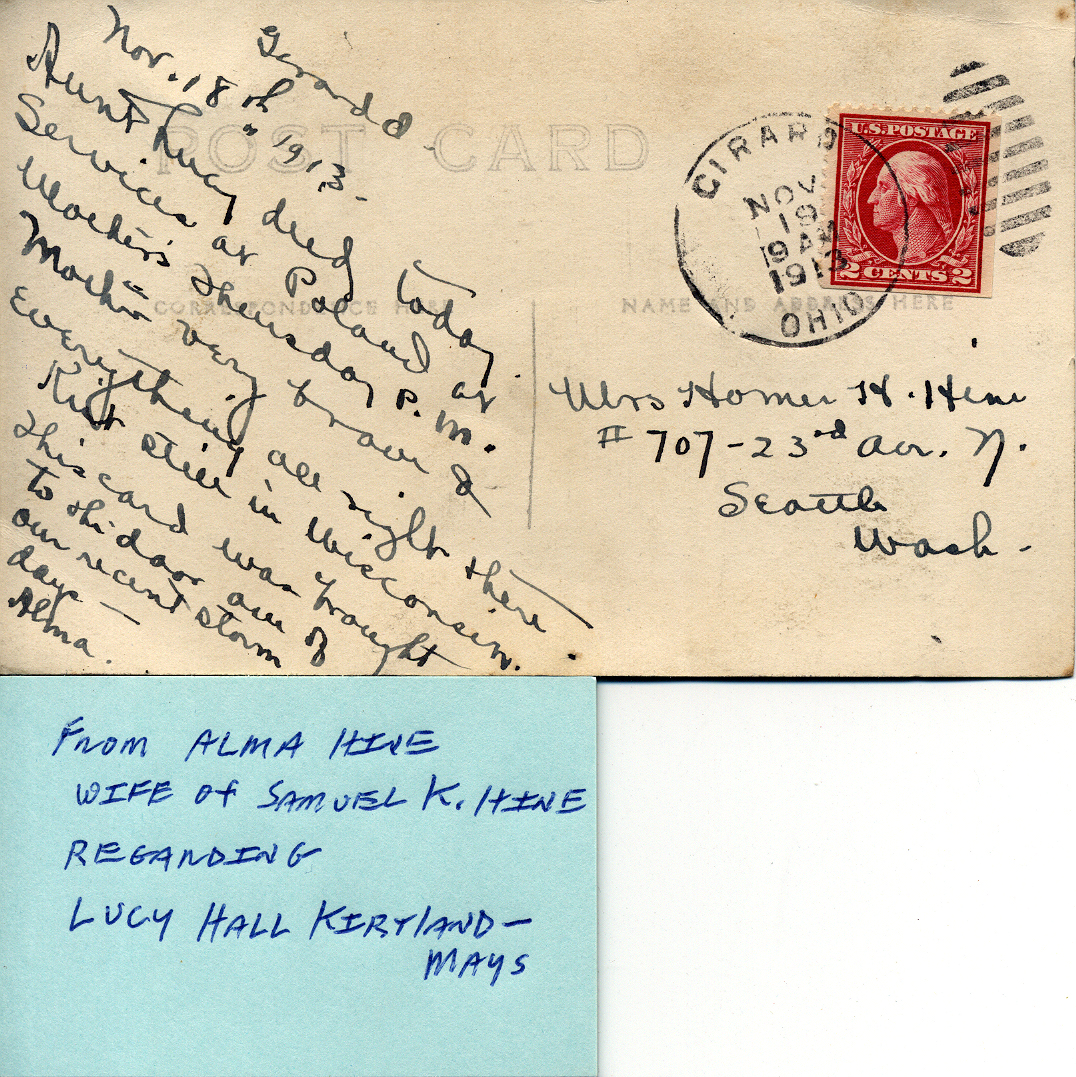 Girard
Nov. 18th 1913-
Aunt Lucy died today
Services at Poland at
Mother's Thursday P.M.
Mother very brave &
Everything all right there
Kirt still in Wisconsin.
This card was brought
to the door one of
our recent storm
days —
Alma.
POST CARD
CORRESPONDENCE HERE
NAME AND ADDRESS HERE
GIRARD
NOV
19
9 AM
1913
OHIO
U.S. POSTAGE
2 CENTS 2
Mrs Homer H. Hine
# 707-23rd Ave. N.
Seattle
Wash-
FROM ALMA HINE
WIFE OF SAMUEL K. HINE
REGARDING
LUCY HALL KIRTLAND-
MAYS